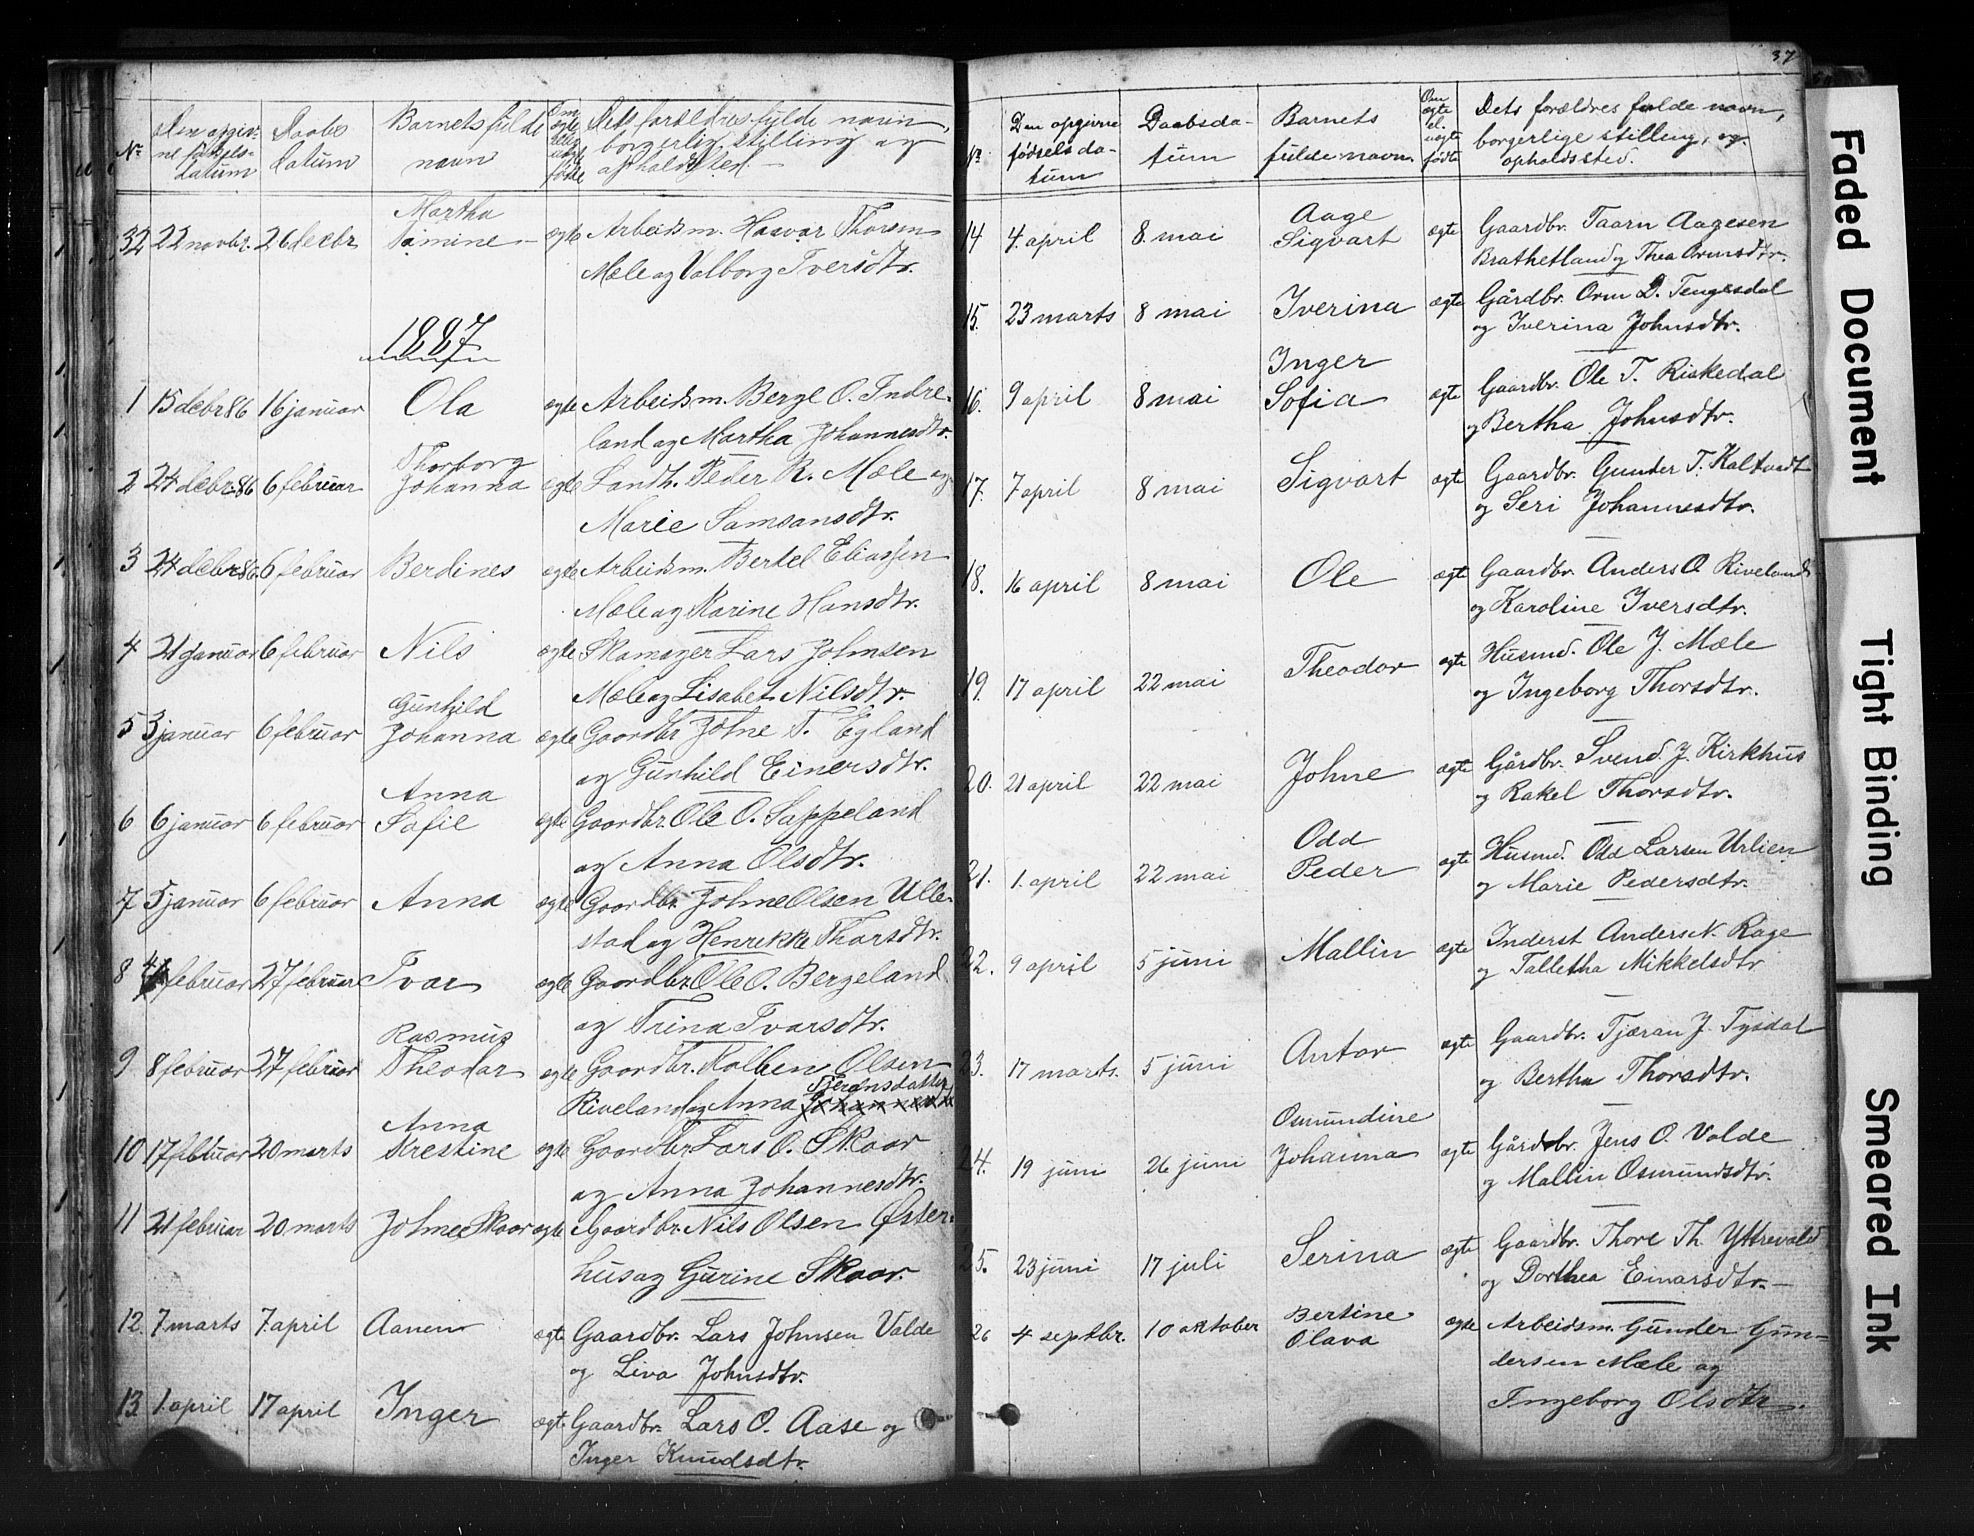 37
No Den opgiv- Daabs Barnets fulde Om ægte eller uægte født Dets forældres fulde navn,
ne fødsels- datum navn borgerlig stilling og
datum opholdssted.
Martha
32 22 novbr. 26 decbr. Tomine ægte Arbeidsm. Haavar Thorsen
Mæle og Valborg Iversdtr.
1887
1 15 decbr 86 16 januar Ola ægte Arbeidsm. Berge O. Indre-
land og Martha Johannesdtr.
Thorborg
2 24 decbr. 86 6 februar Johanna ægte Landh. Peder R. Mæle og
Marie Samsonsdtr.
3 24 decbr. 86 6 februar Berdines ægte Arbeidsm. Bertel Eliassen
Mæle og Karine Hansdtr.
4 21 januar 6 februar Nils ægte Skomager Lars Johnsen
Mæle og Lisabet Nilsdtr.
Gunhild
5 3 januar 6 februar Johanna ægte Gaardbr. Johne T. Egland
og Gunhild Einersdtr.
Anna
6 6 januar 6 februar Sofie ægte Gaardbr. Ole O. Sappeland
og Anna Olsdtr.
7 5 januar 6 februar Anna ægte Gaardbr. Johne Olsen Ulle-
stad og Henrikke Thorsdtr.
8 4 februar 27 februar Ivar ægte Gaardbr. Ole O. Bergeland
og Trina Ivarsdtr.
Rasmus
9 8 februar 27 februar Theodor ægte Gaardbr. Kolben Olsen
Tjeransdatter
Riveland og Anna
Anna
10 17 februar 20 marts Krestine ægte Gaardbr. Lars O. Skaar
og Anna Johannesdtr.
11 21 februar 20 marts Johne Skaar ægte Gaardbr. Nils Olsen Øster-
hus og Gurine Skaar.
12. 7 marts 7. april Aanen ægte Gaardbr. Lars Johnsen Valde
og Liva Johnsdtr.
13. 1. april 17 april Inger ægte Gaardbr. Lars O. Aase og
Inger Knudsdtr.
No. Den opgivne Daabsda- Barnets Om ægte el. uægte født Dets forældres fulde navn,
fødselsda- tum fulde navn. borgerlige stilling, og
tum opholdssted.
Aage
14 4. april 8. mai Sigvart ægte Gaardbr. Taarn Aagesen
Brathetland og Thea Ormsdtr.
15. 23 marts 8 mai Iverina ægte Gårdbr. Orm D. Tengesdal
og Iverina Johnsdtr.
Inger
16. 9 april 8 mai Sofia ægte Gaardbr. Ole T. Riskedal
og Bertha Johnsdtr.
17. 7 april 8 mai Sigvart ægte Gaardbr. Gunder T. Kaltvedt
og Seri Johannesdtr.
18. 16 april 8 mai Ole ægte Gaardbr. Anders O. Riveland
og Karoline Iversdtr.
19. 17 april 22 mai Theodor ægte Husmd. Ole J. Mæle
og Ingeborg Thorsdtr.
20. 21 april 22 mai Johne ægte Gårdbr. Svend J. Kirkhus
og Rakel Thorsdtr.
Odd
21. 1. april 22 mai Peder ægte Husmd. Odd Larsen Urlien
og Marie Pedersdtr.
22. 9 april 5 juni Mallin ægte Inderst Anders N. Rage
og Talletha Mikkelsdtr
23. 17 marts. 5 juni Antor ægte Gaardbr. Tjæran J. Tysdal
og Bertha Thorsdtr.
Osmundine
24. 19 juni 26 juni Johanna ægte Gårdbr. Jens O. Valde
og Mallin Osmundsdtr.
25. 23 juni 17 juli Serina ægte Gaardbr. Thore Th. Yttrevold
og Dorthea Einarsdtr.
Bertine
26 4 septbr. 10 oktober Olava ægte Arbeidsm. Gunder Gun-
dersen Mæle og
Ingeborg Olsdtr.
Faded Document
Tight Binding
Smeared Ink